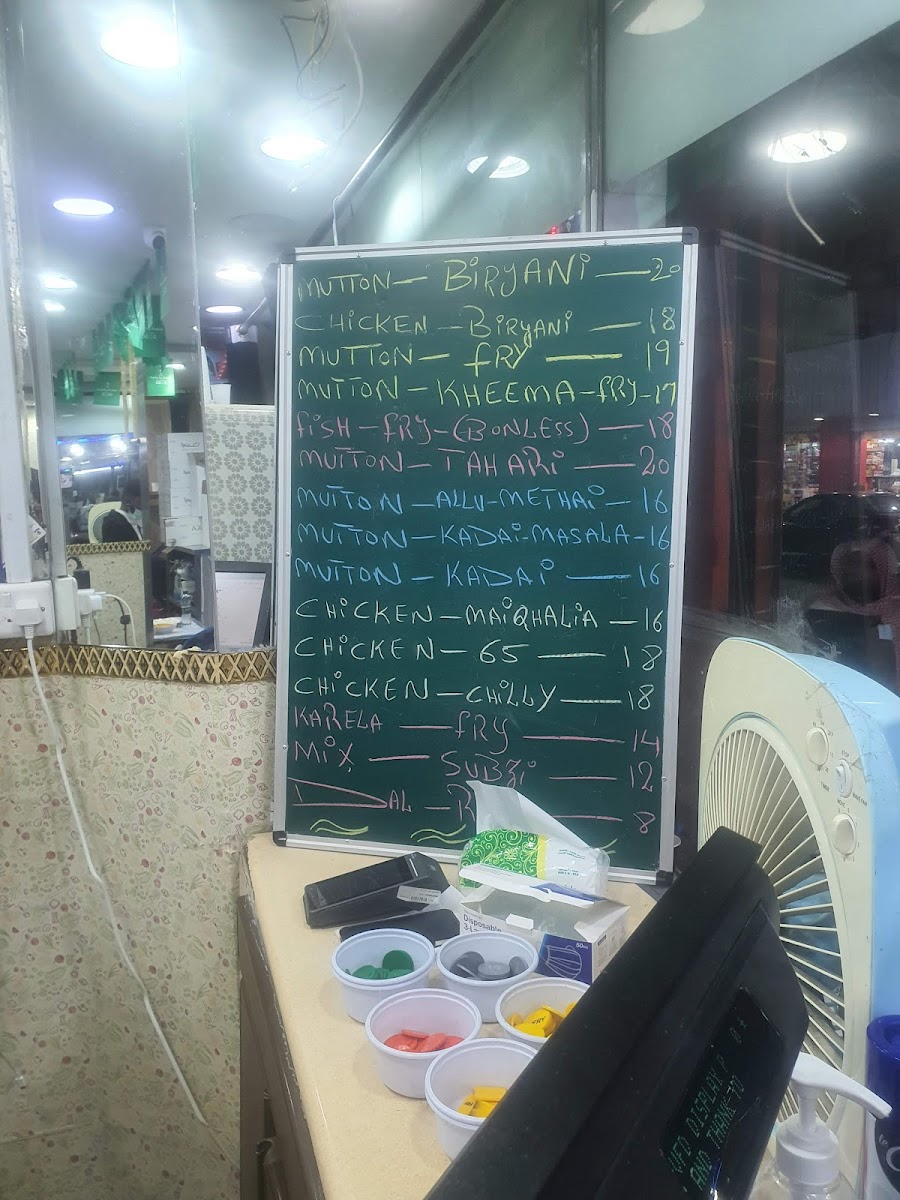 MUTTON — BiRYANi — 20
CHiCKEN — BiRYANi — 18
MUTTON — fRY — 19
MUTTON — KHEEMA — fRY - 17
fiSH — fRY — (BONLESS) — 18
MUTTON — TAHARi — 20
MUTTON — ALLU - METHAi — 16
MUTTON — KADAi - MASALA - 16
MUTTON — KADAi — 16
CHiCKEN — MAiQHALiA — 16
CHiCKEN — 65 — 18
CHiCKEN — CHiLLY — 18
KARELA — fRY — 14
MiX — SUBZi — 12
DAL — 8
Disposable
50
FRY
VFD DISPLAY
AND THANK